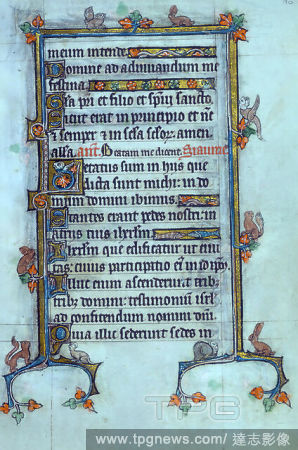 meum intende.
Domine ad adiuuandum me
festina.
Gła pri et filio et spui sancto.
Sicut erat in principio et nc
et semper et in scla sclorz. amen.
alla. ant. Beatam me dicent. Psalmus
Letatus sum in hiis que
dicta sunt michi: in do
mum domini ibimus.
Stantes erant pedes nostri: in
atriis tuis ihrlm.
Ihrlm que edificatur ut civi
tas: cuius participatio
Illuc enim ascenderunt trib
tribz domini: testimonium isrl
ad confitendum nomini
Quia illic sederunt sedes in
TPG
www.tpgnews.com/達志影像